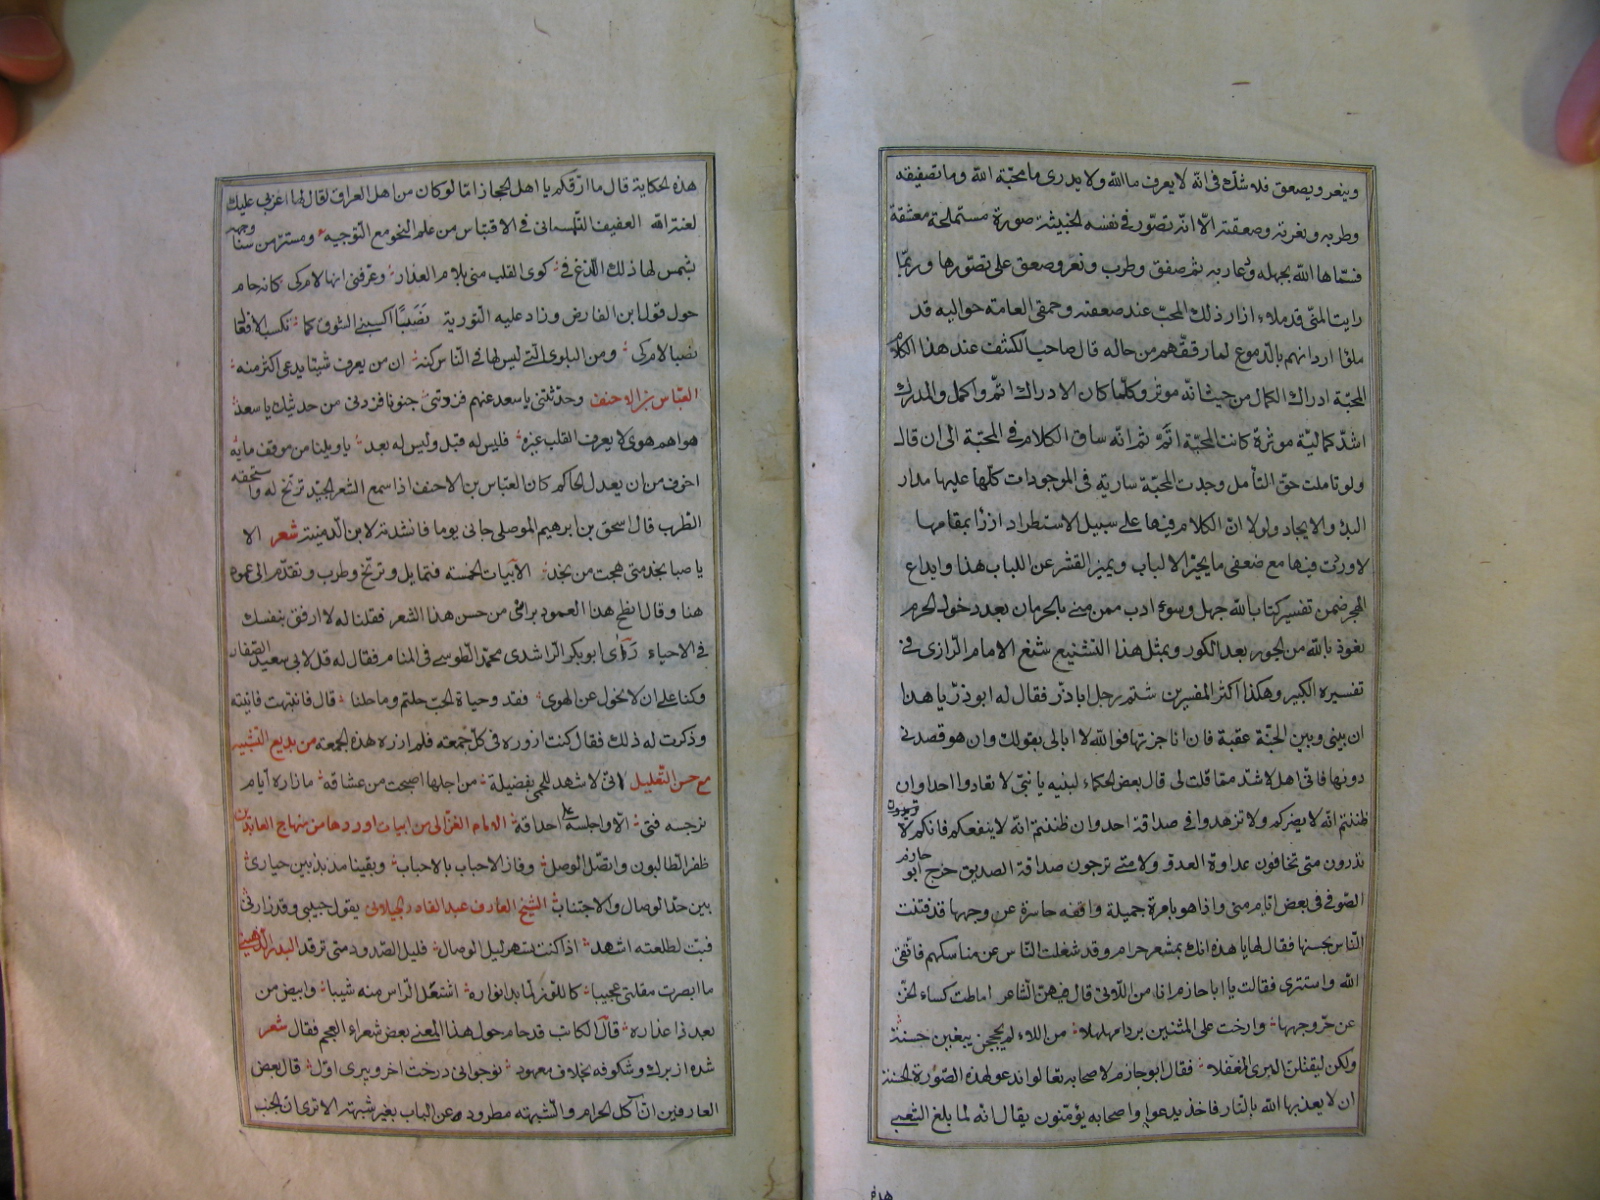 وينعر ويصعق فلا شك فى انه لا يعرف ما الله ولا يدرى ما محبة الله وما تصفيقه
وطربه ونعرته وصعقته الا انه تصور فى نفسه الخبيثة صورة مستملحة معشقة
فسماها الله بجهله ودعارته ثم صفق وطرب ونعر وصعق على تصورها وربما
رايت المنى قد ملاء ازار ذلك المحب عند صعقته وحمقى العامة حواليه قد
ملؤا اردانهم بالدموع لما رققهم من حاله قال صاحب الكشف عند هذا الكلام
المحبة ادراك الكمال من حيث انه موثر وكلما كان الادراك اتم واكمل والمدرك
اشد كمالية موثرة كانت المحبة اتم ثم انه ساق الكلام فى المحبة الى ان قال
ولو تاملت حق التأمل وجدت المحبة سارية فى الموجودات كلها عليها مدار
البدؤ والايجاد ولولا ان الكلام فيها على سبيل الاستطراد ازرا بمقامها
لاوردت فيها مع ضعفى ما يحير الالباب ويميز القشر عن اللباب هذا وايداع
الهجر ضمن تفسير كتاب الله جهل وسوء ادب ممن منى بالحرمان بعد دخول الحرم
نعوذ بالله من الحور بعد الكور وبمثل هذا التشنيع شنع الامام الرازى فى
تفسيره الكبير وهكذا اكثر المفسرين شتم رجل ابا ذر فقال له ابو ذر يا هذا
ان بينى وبين الجنة عقبة فان انا جزتها فوالله لا ابالى بقولك وان هو قصدنى
دونها فانى اهل لاشد مما قلت لى قال بعض الحكماء لبنيه يا بنى لا تعادوا احدا وان
ظننتم انه لا يضركم ولا تزهدوا فى صداقة احد وان ظننتم انه لا ينفعكم فانكم لا
تدرون متى تخافون عداوة العدو ولا متى ترجون صداقة الصديق خرج ابو حازم
الصوفى فى بعض ايام منى واذا هو بامرة جميلة واقفه حاسرة عن وجهها قد فتنت
الناس بحسنها فقال لها يا هذه انك بمشعر حرام وقد شغلت الناس عن مناسكهم فاتقى
الله واستترى فقالت يا ابا حازم انا من اللائى قال فيهن الشاعر اماطت كساء الخز
عن حر وجهها وارخت على المتنين بردا مهلهلا من اللاء لم يحججن يبغين حسنة
ولكن ليقتلن البرى المغفلا فقال ابو حازم لاصحابه تعالوا ندعو لهذه الصورة الحسنة
ان لا يعذبها الله بالنار فاخذ يدعوا واصحابه يؤمنون يقال انه لما بلغ الشعبى
هذه
هذه الحكاية قال ما ارقكم يا اهل الحجاز اما لو كان من اهل العراق لقال لها اعزبى عليك
لعنة الله العفيف التلمسانى فى الاقتباس من علم النحو مع التوجيه ومستتر من سنا وجهه
بشمس لها ذلك الصدغ فى كوى القلب منى بلام العذار وعرفنى انها لام كى كانه حام
حول قول ابن الفارض وزاد عليه التورية نصبا اكسبنى الشوق كما تكسب الافعال
نصبا لام كى ومن البلوى التى ليس لها فى الناس كنه ان من يعرف شيئا يدعى اكثر منه
العباس بن الاحنف وحدثتنى يا سعد عنهم فزدتنى جنونا فزدنى من حديثك يا سعد
هواهم هوى لا يعرف القلب غيره فليس له قبل وليس له بعد يا ويلنا من موقف ما به
اخوف من ان يعدل الحاكم كان العباس بن الاحنف اذا سمع الشعر الجيد ترنح له واستخفه
الطرب قال اسحق بن ابرهيم الموصلى جانى يوما فانشدته لابن الدمينة شعر الا
يا صبا نجد متى هجت من نجد الابيات الخمسة فتمايل وترنح وطرب وتقدم الى عمود
هنا وقال انطح هذا العمود براسى من حسن هذا الشعر فقلنا له لا ارفق بنفسك
فى الاحياء رأى ابو بكر الراشدى محمد الطوسى فى المنام فقال له قل لابى سعيد الصفار
وكنا على ان لا نحول عن الهوى فقد وحياة الحب حلتم وما حلنا قال فانتبهت فاتيته
وذكرت له ذلك فقال كنت ازوره فى كل جمعة فلم ازره هذه الجمعة من بديع التشبيه
مع حسن التعليل لانى لاشهد للحمى بفضيلة من اجلها اصبحت من عشاقه ما زاره ايام
نرجسه فتى الا واجلسه على احداقه الامام الغزالى من ابيات اوردها من منهاج العابدين
ظفر الطالبون واتصل الوصل وفاز الاحباب بالاحباب وبقينا مذبذبين حيارى
بين حد الوصال والاجتناب الشيخ العارف عبد القادر الجيلانى يقول حبيبى وقد زارنى
فبت لطلعته اشهد اذا كنت تسهر ليل الوصال فليل الصدود متى ترقد البدر الذهبى
ما ابصرت مقلتى عجيبا كاللوز لما بدا نواره اشتعل الراس منه شيبا وابيض من
بعد ذا عذاره قال الكاتب قد حام حول هذا المعنى بعض شعراء العجم فقال شعر
شده از برك وشكوفه بخلاف معهود نوجوانى درخت اخر وپيرى اول قال بعض
العارفين ان اكل الحرام والشبهة مطرود عن الباب بغير شبهة الا ترى ان الجنب